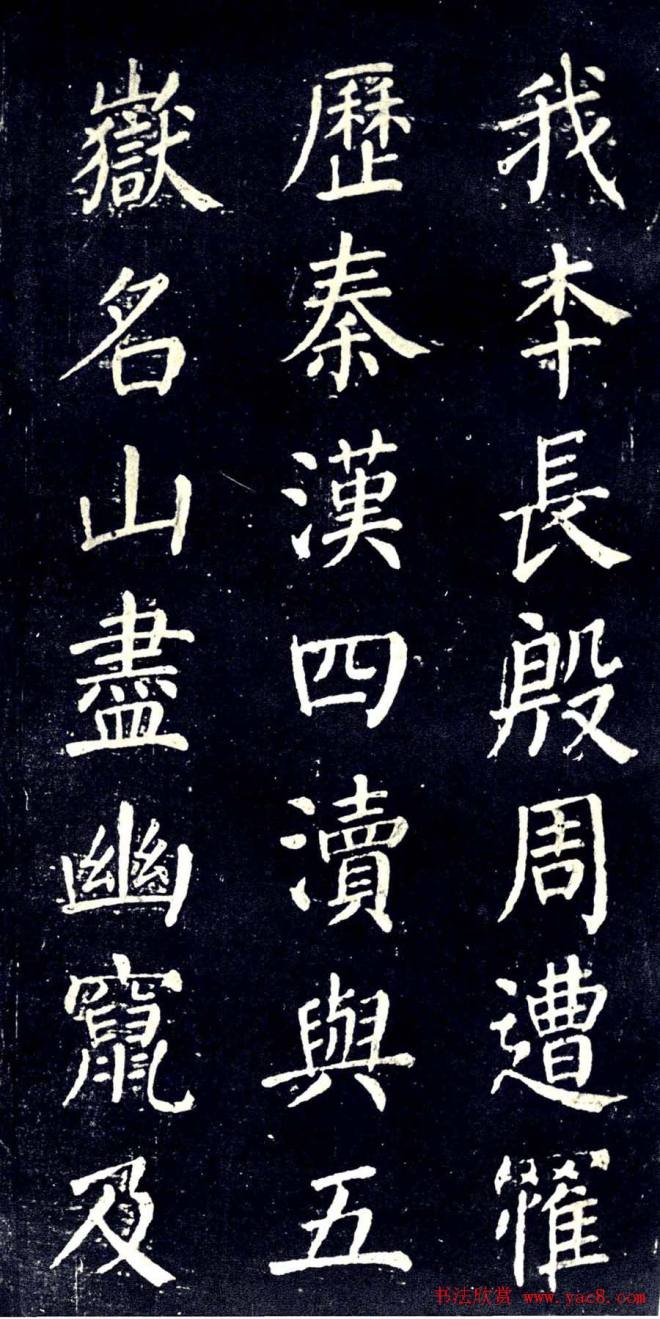 我夲長殷周遭罹
歷秦漢四瀆與五
嶽名山盡幽竄及
书法欣赏 www.yac8.com